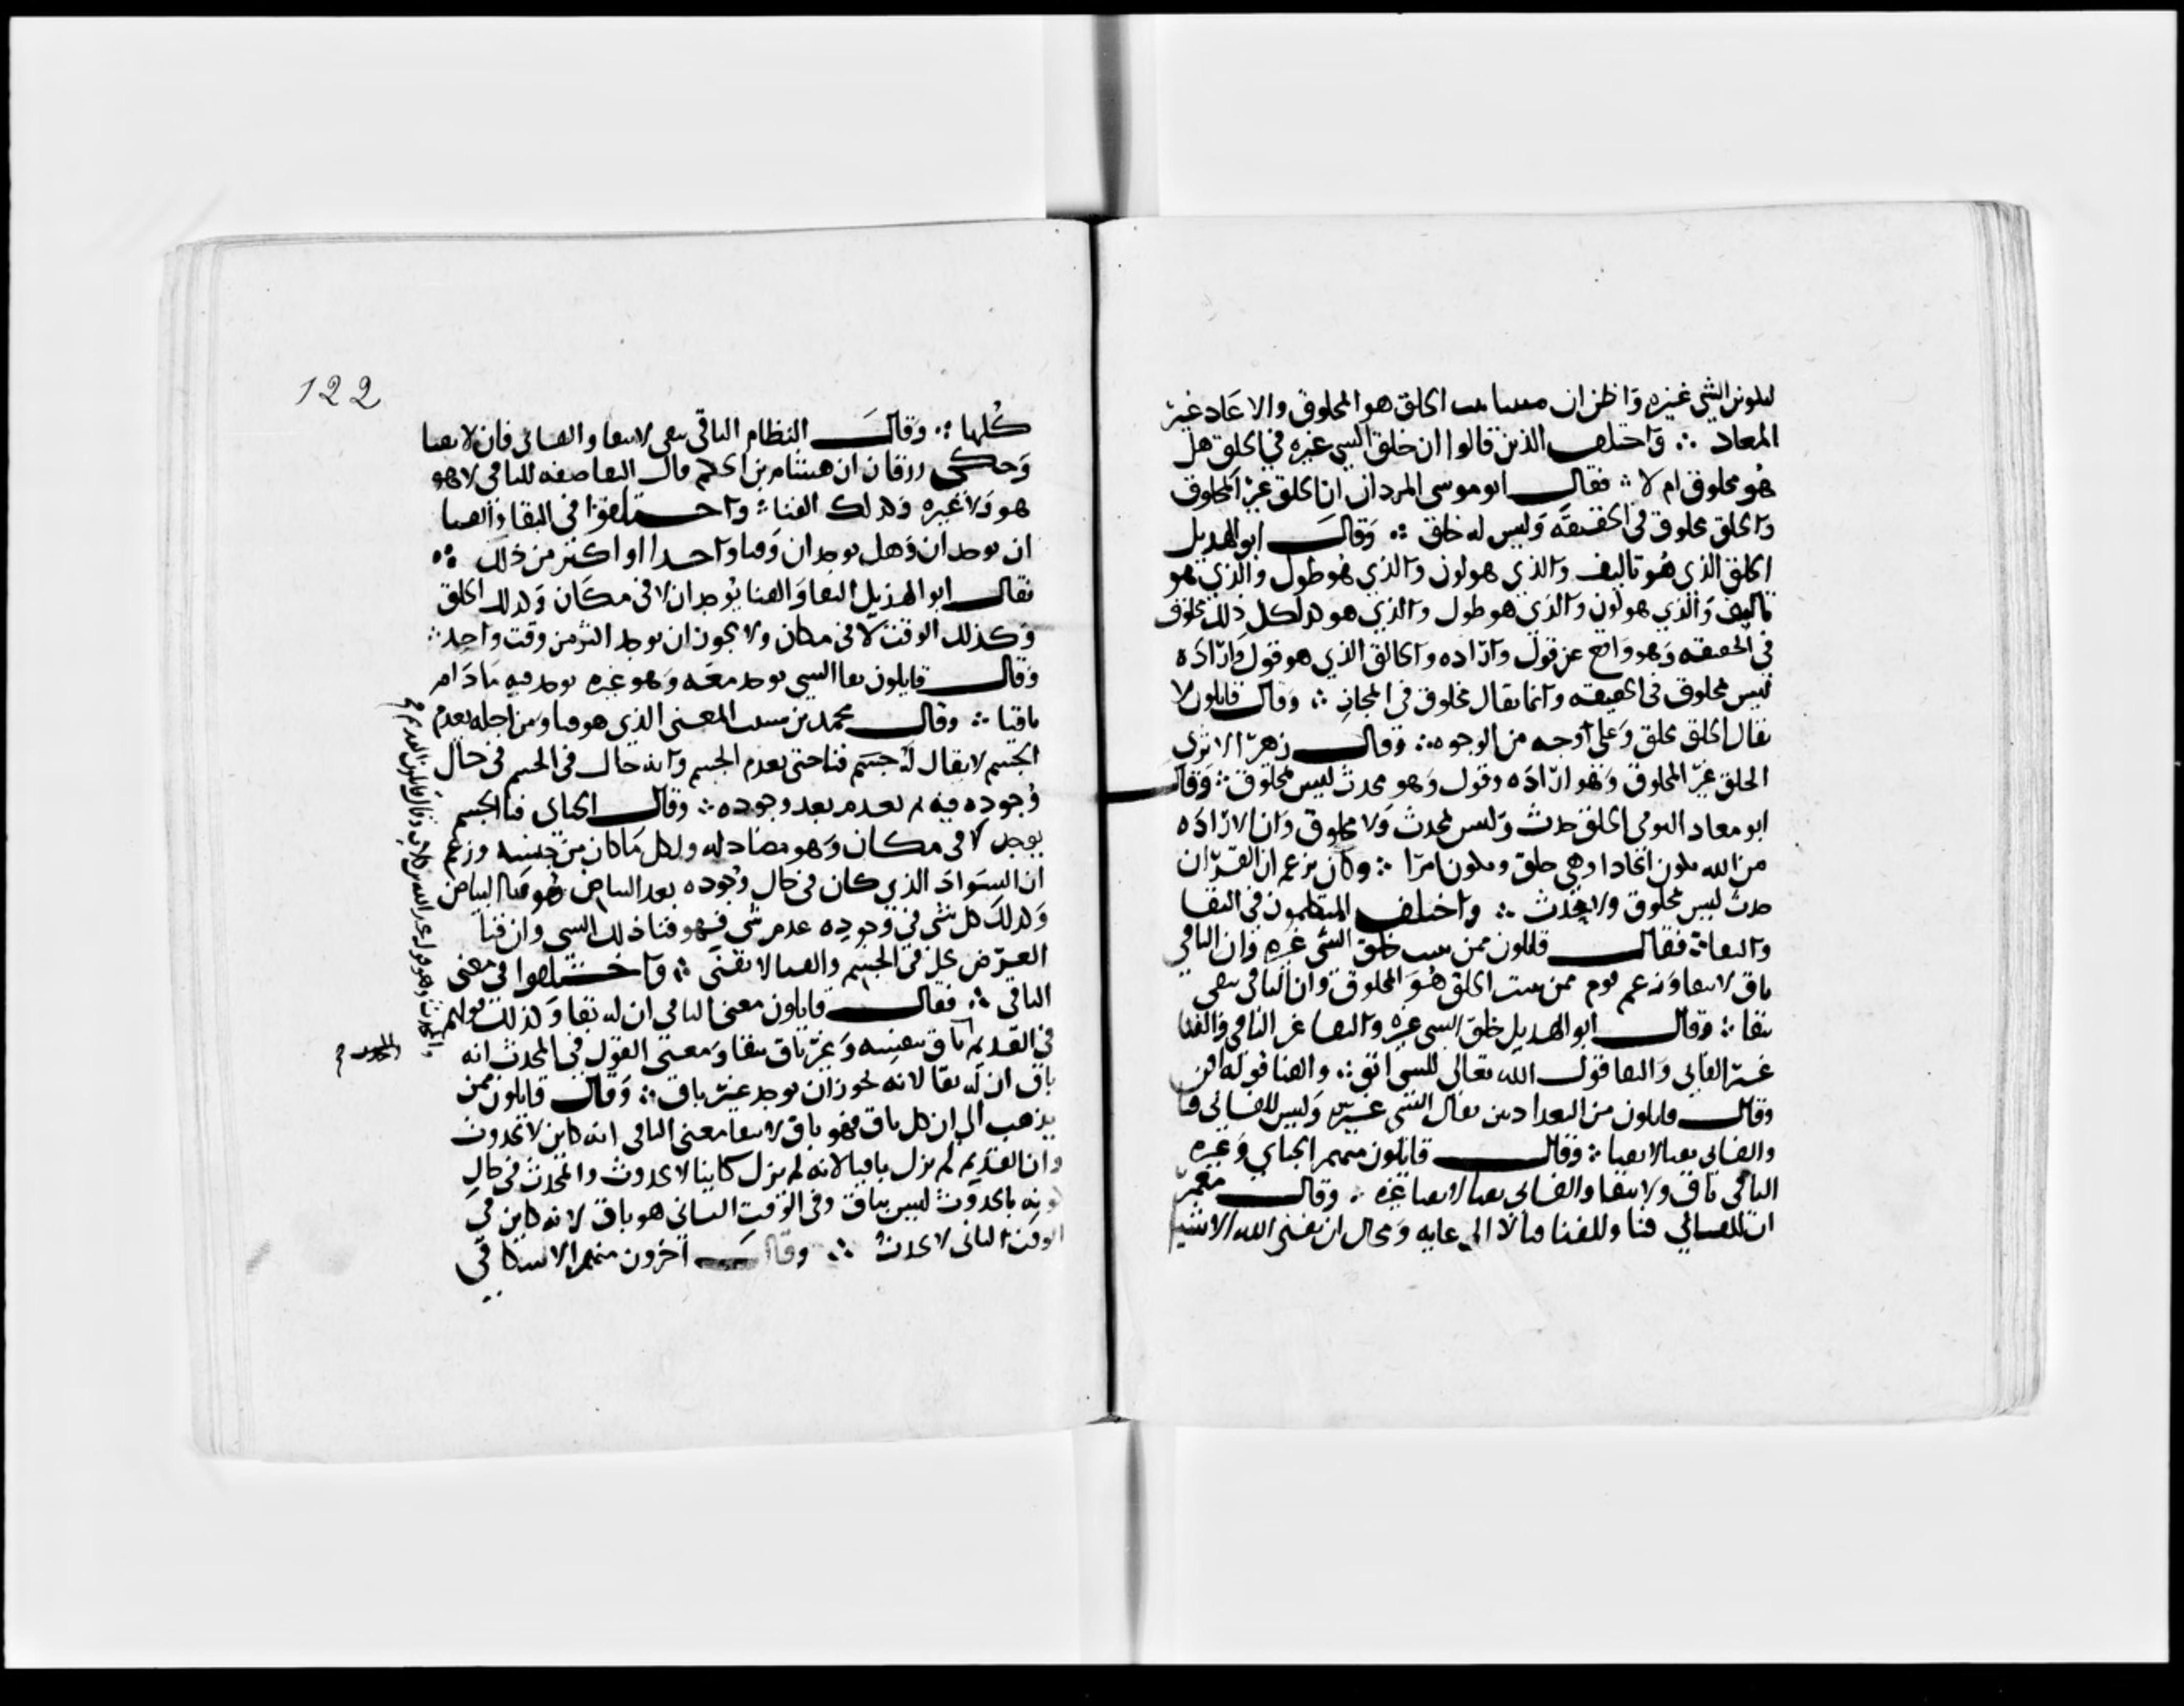 لتكوين الشي غيره واظن ان مثبتا يثبت الخلق هو المخلوق والاعاده غير
المعاد ∴ واختلف الذين قالوا ان خلق الشي غيره في الخلق هل
هو مخلوق ام لا ∴ فقال ابو موسى المردار ان الخلق غير المخلوق
والخلق مخلوق في الحقيقه وليس له خلق ∴ وقال ابو الهذيل
الخلق الذي هو تاليف والذي هو لون والذي هو طول والذي هو
تاليف والذي هو لون والذي هو طول والذي هو كذا كل ذلك مخلوق
في الحقيقه وهو واقع عن قول واراده والخالق الذي هو قول واراده
ليس مخلوق في الحقيقه وانما يقال مخلوق في المجاز ∴ وقال قايلون لا
يقال الخلق مخلوق على وجه من الوجوه ∴ وقال زهير الاثري
الخلق غير المخلوق وهو اراده وقول وهو محدث ليس بمخلوق ∴ وقال
ابو معاذ التومني الخلق حدث وليس بمحدث ولا مخلوق وان الاراده
من الله تكون ايجادا وهي خلق وتكون امرا ∴ وكان يزعم ان القران
حدث ليس بمخلوق ولا محدث ∴ واختلف المتكلمون في البقا
والبقا ∴ فقال قايلون ممن يثبت خلق الشي غيره وان الباقي
باق لا ببقا وزعم قوم ممن يثبت الخلق هو المخلوق وان الباقي يبقى
ببقا ∴ وقال ابو الهذيل خلق الشي غيره والبقا غير الباقي والفنا
غير الفاني والبقا قول الله تعالى للشي ابق ∴ والفنا قوله افن
وقال قايلون من البغداديين بقال الشي غيره وليس للفاني فنا
والفاني يفنى لا بفنا ∴ وقال قايلون منهم الجباي وغيره
الباقي باق ولا ببقا والفاني يفنى لا بفنا غيره ∴ وقال معمر
ان للفاني فنا وللفنا فنا لا الى غايه ومحال ان يفني الله الاشيا
122
كلها ∴ وقال النظام الباقي يبقى لا ببقا والفاني فان لا بفنا
وحكى زرقان ان هشام بن الحكم قال البقا صفه للباقي لا هو
هو ولا غيره وكذلك الفنا ∴ واختلفوا في البقا والفنا
ان يوجدان وهل يوجدان وقتا واحدا او اكثر من ذلك ∴
فقال ابو الهذيل البقا والفنا يوجدان لا في مكان وكذلك الخلق
وكذلك الوقت لا في مكان ولا يجوز ان يوجد اكثر من وقت واحد ∴
وقال قايلون بقا الشي يوجد معه وهو غيره يوجد فيه ما دام
باقيا ∴ وقال محمد بن شبيب المعنى الذي هو فنا ومن اجله يعدم
الجسم لا يقال له جسم فنا حتى يعدم الجسم وانه حال في الجسم في حال
وجوده فيه ثم يعدم بعد وجوده ∴ وقال الجباي فنا الجسم
يوجد لا في مكان وهو مضاد له ولكل ما كان من جنسه وزعم
ان السواد الذي كان في حال وجوده بعد البياض هو فنا البياض
وكذلك كل شي في وجوده عدم شي فهو فنا ذلك الشي وان فنا
العرض يحل في الجسم والفنا لا يفنى ∴ واختلفوا في معنى
الباقي ∴ فقال قايلون معنى الباقي ان له بقا وكذلك قولهم
في القديم باق بنفسه وغير باق ببقا ومعنى القول في المحدث انه
باق ان له بقا لانه يجوز ان يوجد غير باق ∴ وقال قايلون ممن
يذهب الى ان كل باق فهو باق لا ببقا معنى الباقي انه كاين لا بحدوث
وان القديم لم يزل باقيا لانه لم يزل كاينا لا بحدوث والمحدث في حال
كونه بالحدوث ليس بباق وفي الوقت الثاني هو باق لانه كاين في
الوقت الثاني لا بحدث ∴ وقال اخرون منهم الاسكافي